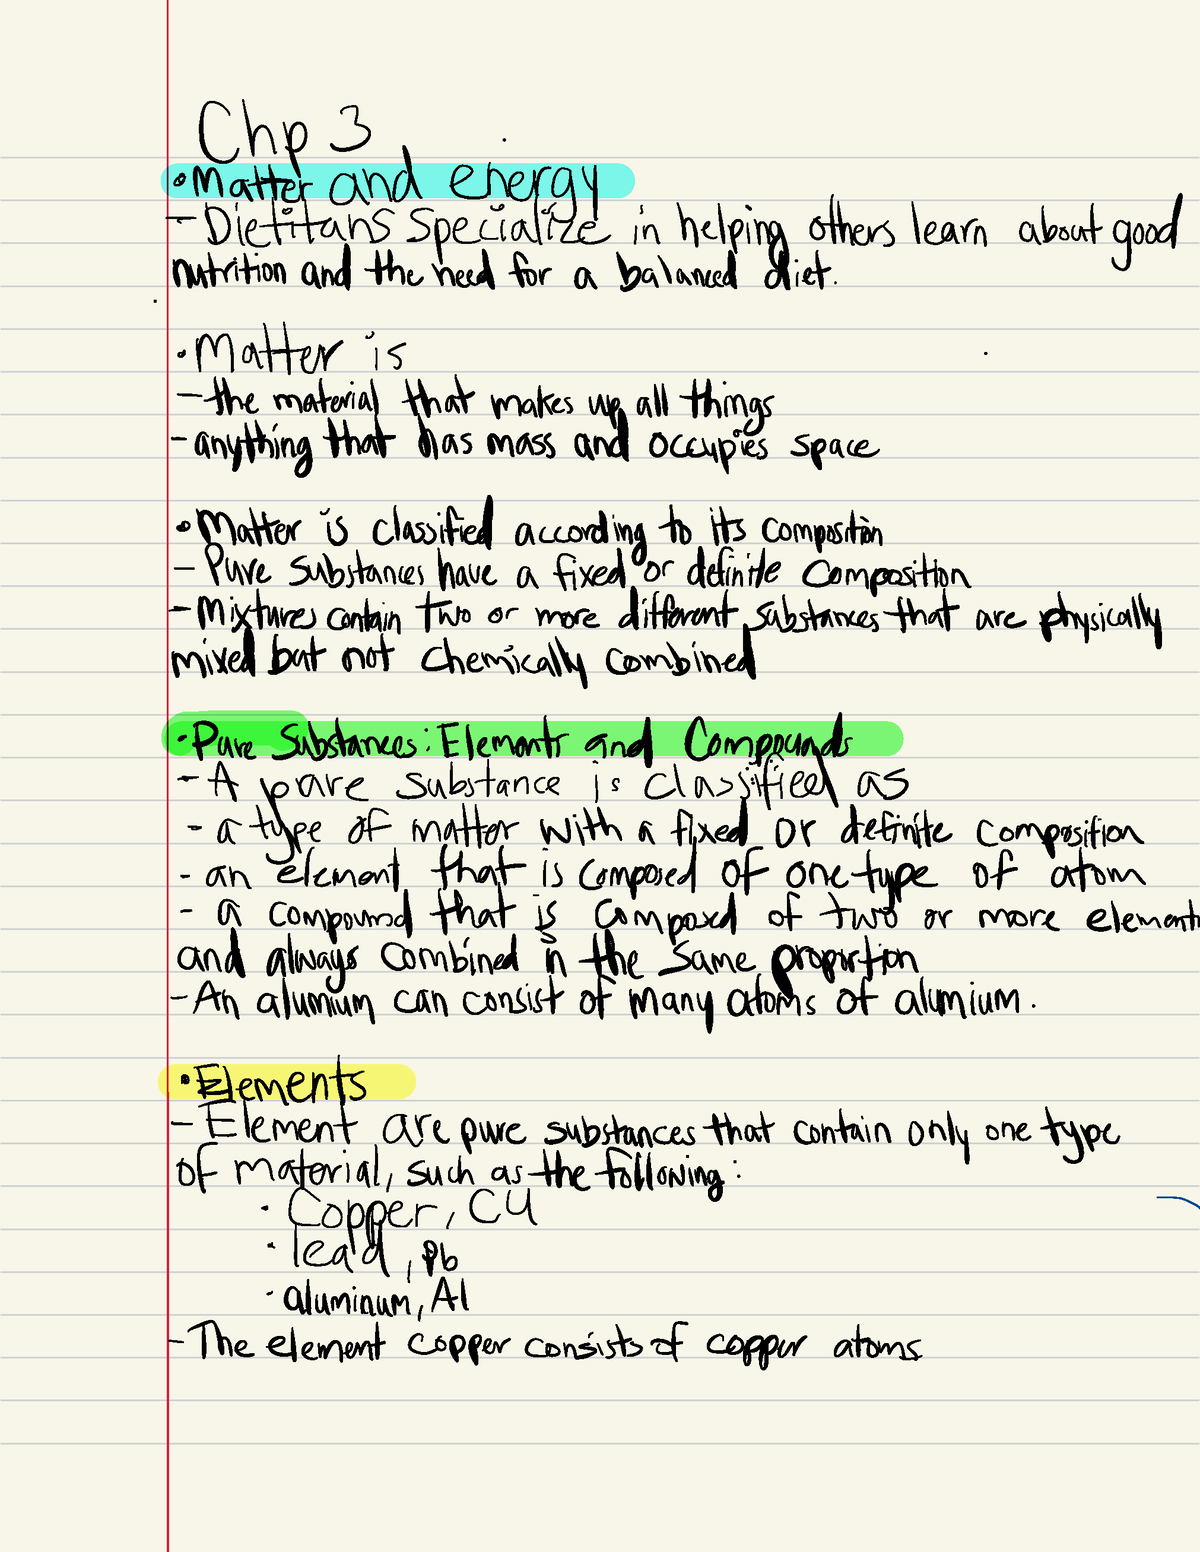 Chp 3
• Matter and energy
- Dietitans specialize in helping others learn about good
nutrition and the need for a balanced diet.
• Matter is
- the material that makes up all things
- anything that has mass and occupies space
• Matter is classified according to its composition
- Pure substances have a fixed or definite composition
- Mixtures contain two or more different substances that are physically
mixed but not chemically combined
• Pure Substances: Elements and Compounds
- A pure substance is classified as
- a type of matter with a fixed or definite composition
- an element that is composed of one type of atom
- a compound that is composed of two or more element
and always combined in the same proportion
- An alumium can consist of many atoms of alumium.
• Elements
- Element are pure substances that contain only one type
of material, such as the following:
• Copper, CU
• lead, Pb
• aluminum, Al
- The element copper consists of copper atoms